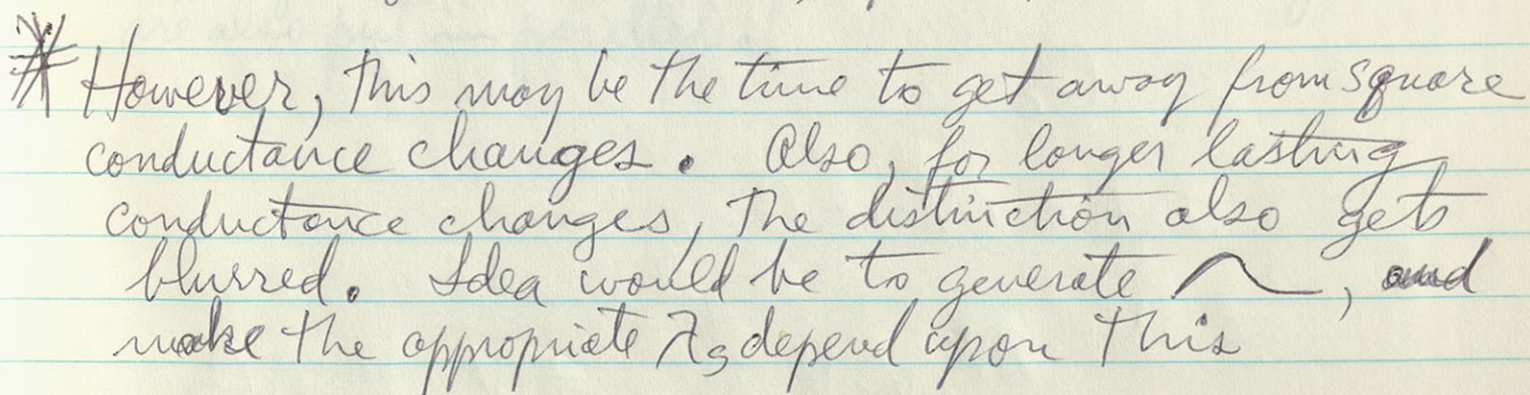 * However, this may be the time to get away from square
conductance changes. Also, for longer lasting
conductance changes, the distinction also gets
blurred. Idea would be to generate , and
make the appropriate λs depend upon this